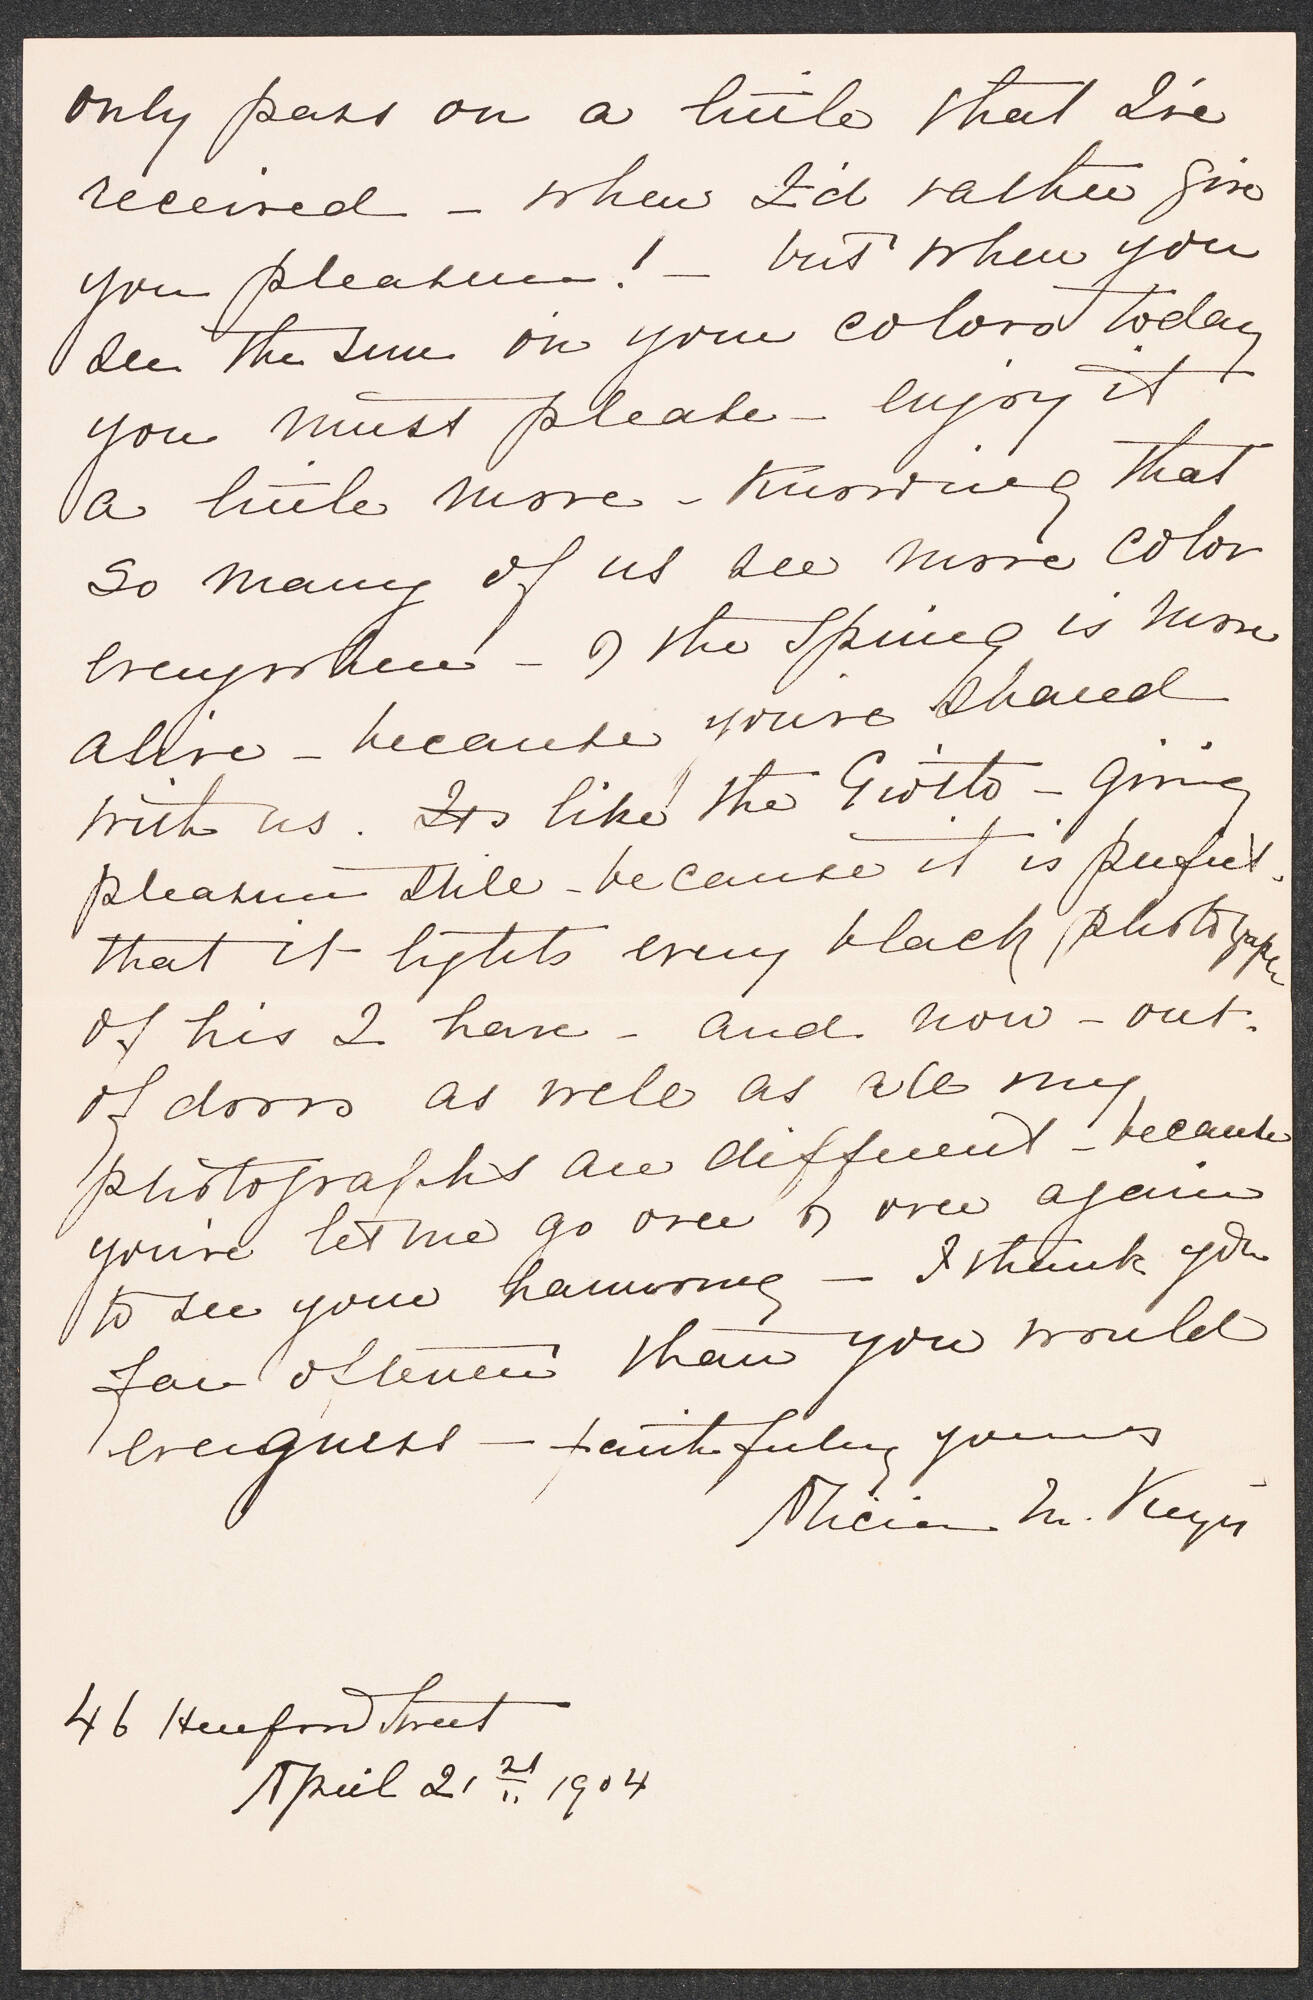 only pass on a little that I've
received – when I'd rather give
you pleasure! – but when you
see the sun on your colors today
you must please – enjoy it
a little more – knowing that
so many of us see more color
everywhere – & the Spring is more
alive – because you've shared
with us. Its like the Giotto – giving
pleasure still – because it is perfect.
that it lights every black photograph
of his I have – and now – out-
of doors as well as all my
photographs are different – because
you've let me go over & over again
to see your harmony – I thank you
far oftener than you would
ever guess – faithfully yours
Alicia M. Keyes
46 Hereford Street
April 21st 1904